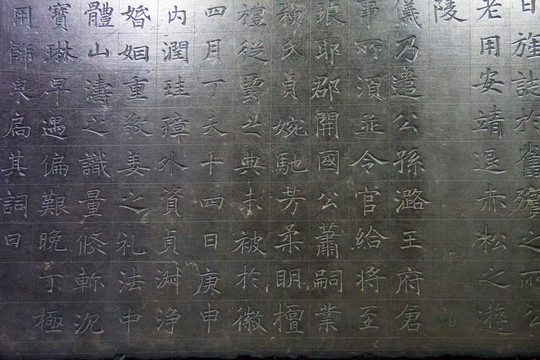 日旌誌於舊之而公
老用安靖退赤松之遊
陵
儀乃遣公孫潞王府倉
事所須並令官給將至
琅耶郡開國公蕭嗣業
楊氏貞婉馳芳柔明檀
禮從爵之典未被於徽
四月丁未十四日庚申
内潤珪璋外資貞淑淨
婚姻重敬姜之礼法中
體山濤之識量倏斬沉
寶琳早遇偏艱晚丁極
用飾泉扃其詞曰